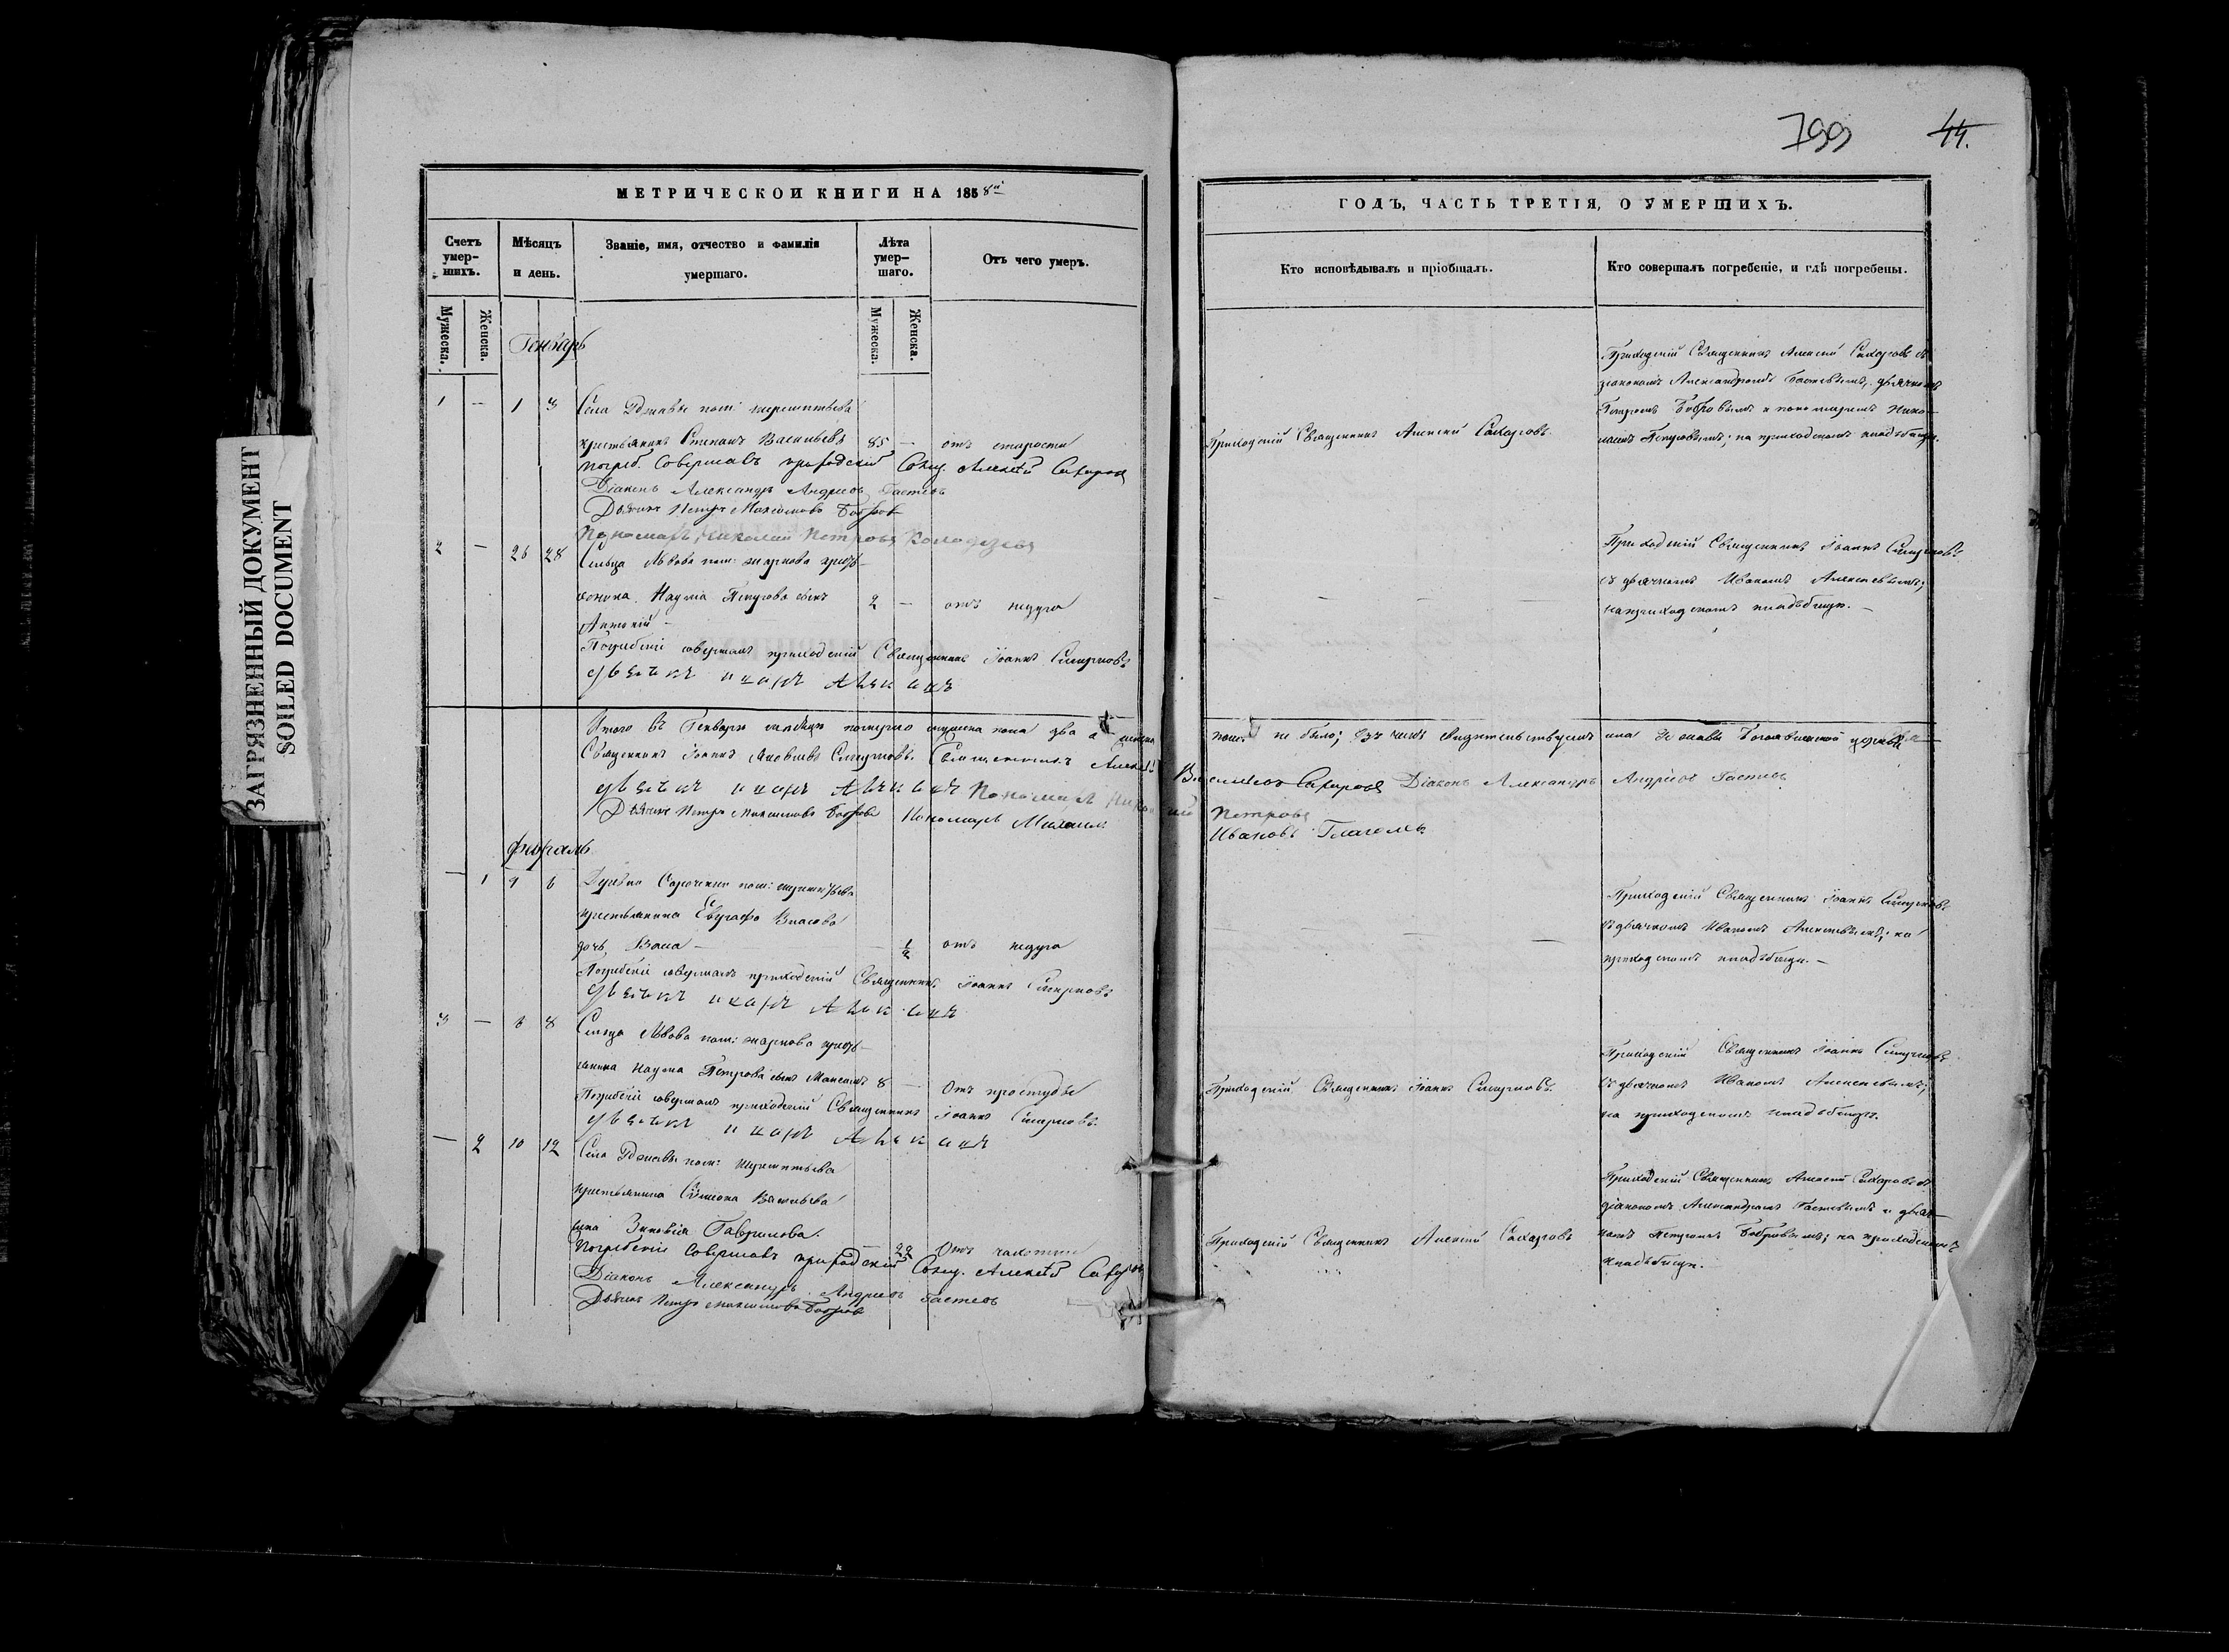 ЗАГРЯЗНЕННЫЙ ДОКУМЕНТ
SOILED DOCUMENT
МЕТРИЧЕСКОЙ КНИГИ НА 1858й
Счетъ умер-шихъ.
Мѣсяцъ и день.
Званіе, имя, отчество и фамилія умершаго.
Лѣта умер-шаго.
Отъ чего умеръ.
Мужеска.
Женска.
Мужеска.
Женска.
Генварь
1 — 1 3 Села
крестьянинъ Степанъ Васильевъ 85 — отъ старости
погреб. Совершалъ приходскій Свящ. Алексѣй Сахаровъ
Діаконъ Александръ Андреевъ Гастевъ
Дьячекъ Петръ Максимовъ Бобровъ
Пономарь Николай Петровъ
2 — 26 28 Сельца Львова пом:
Наума Петрова сынъ 2 — отъ недуга
Антоній —
Погребеніе совершалъ приходскій Священникъ Іоаннъ Смирновъ
Итого въ Генварѣ мѣсяцѣ померло мужеска пола два а женска
Священникъ Іоаннъ Смирновъ. Священникъ Алексѣй
Пономарь
Дьячекъ Петръ Максимовъ Бобровъ Пономарь Михаилъ
Февраль
— 1 4 6 пом:
крестьянина Евграфа Власова
дочь — ½ отъ недуга
Погребеніе совершалъ приходскій Священникъ Іоаннъ Смирновъ
3 — 6 8 Сельца Львова пом:
Наума Петрова сынъ Максимъ 8 — Отъ простуды
Погребеніе совершалъ приходскій Священникъ Іоаннъ Смирновъ.
— 2 10 12 Села пом:
крестьянина Симеона Васильева
жена Зиновія Гаврилова.
— 22 Отъ чахотки
Погребеніе Совершалъ приходскій Свящ. Алексѣй Сахаровъ
Діаконъ Александръ Андреевъ Гастевъ
Дьячекъ Петръ Максимовъ Бобровъ
799 44.
ГОДЪ, ЧАСТЬ ТРЕТІЯ, О УМЕРШИХЪ.
Кто исповѣдывалъ и пріобщалъ.
Кто совершалъ погребеніе, и гдѣ погребены.
Приходскій Священникъ Алексѣй Сахаровъ съ
діакономъ Александромъ Гастевымъ, дьячкомъ
Петромъ Бобровымъ и пономаремъ Нико-
Приходскій Священникъ Алексѣй Сахаровъ.
лаемъ Петровымъ; на приходскомъ кладбищѣ.
Приходскій Священникъ Іоаннъ Смирновъ
съ дьячкомъ Иваномъ Алексѣевымъ;
на приходскомъ кладбищѣ. —
пола не было; въ чемъ свидѣтельствуемъ Богоявленской церкви
Сахаровъ Діаконъ Александръ Андреевъ Гастевъ
Петровъ
Ивановъ
Приходскій Священникъ Іоаннъ Смирновъ
съ дьячкомъ Иваномъ Алексѣевымъ; на
приходскомъ кладбищѣ. —
Приходскій Священникъ Іоаннъ Смирновъ
Приходскій Священникъ Іоаннъ Смирновъ.
съ дьячкомъ Иваномъ Алексѣевымъ;
на приходскомъ кладбищѣ.
Приходскій Священникъ Алексѣй Сахаровъ съ
діакономъ Александромъ Гастевымъ и дьяч-
Приходскій Священникъ Алексѣй Сахаровъ
комъ Петромъ Бобровымъ; на приходскомъ
кладбищѣ.